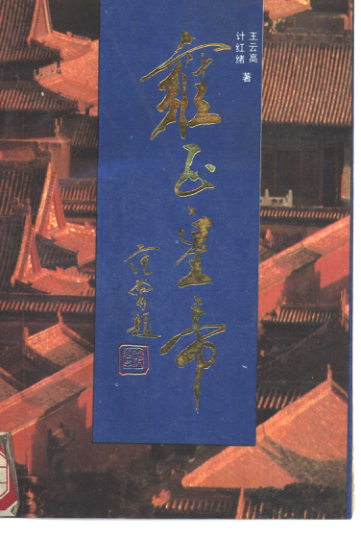 王云高
计红绪 著
雍正皇帝